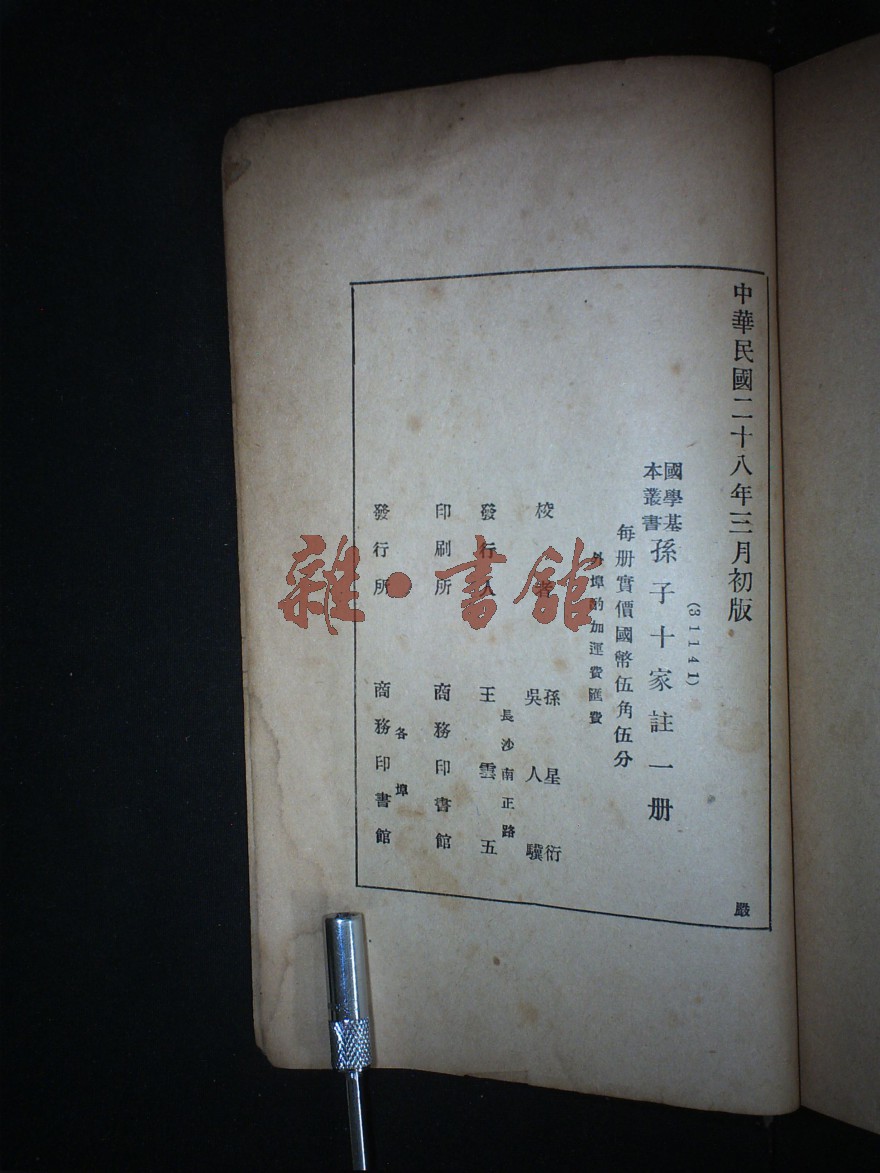 中華民國二十八年三月初版
(31141)
國學基本叢書 孫子十家註一册
每册實價國幣伍角伍分
外埠酌加運費匯費
校者 孫星衍 吳人驥
長沙南正路
發行人 王雲五
印刷所 商務印書館
各埠
發行所 商務印書館
嚴
雜·書館